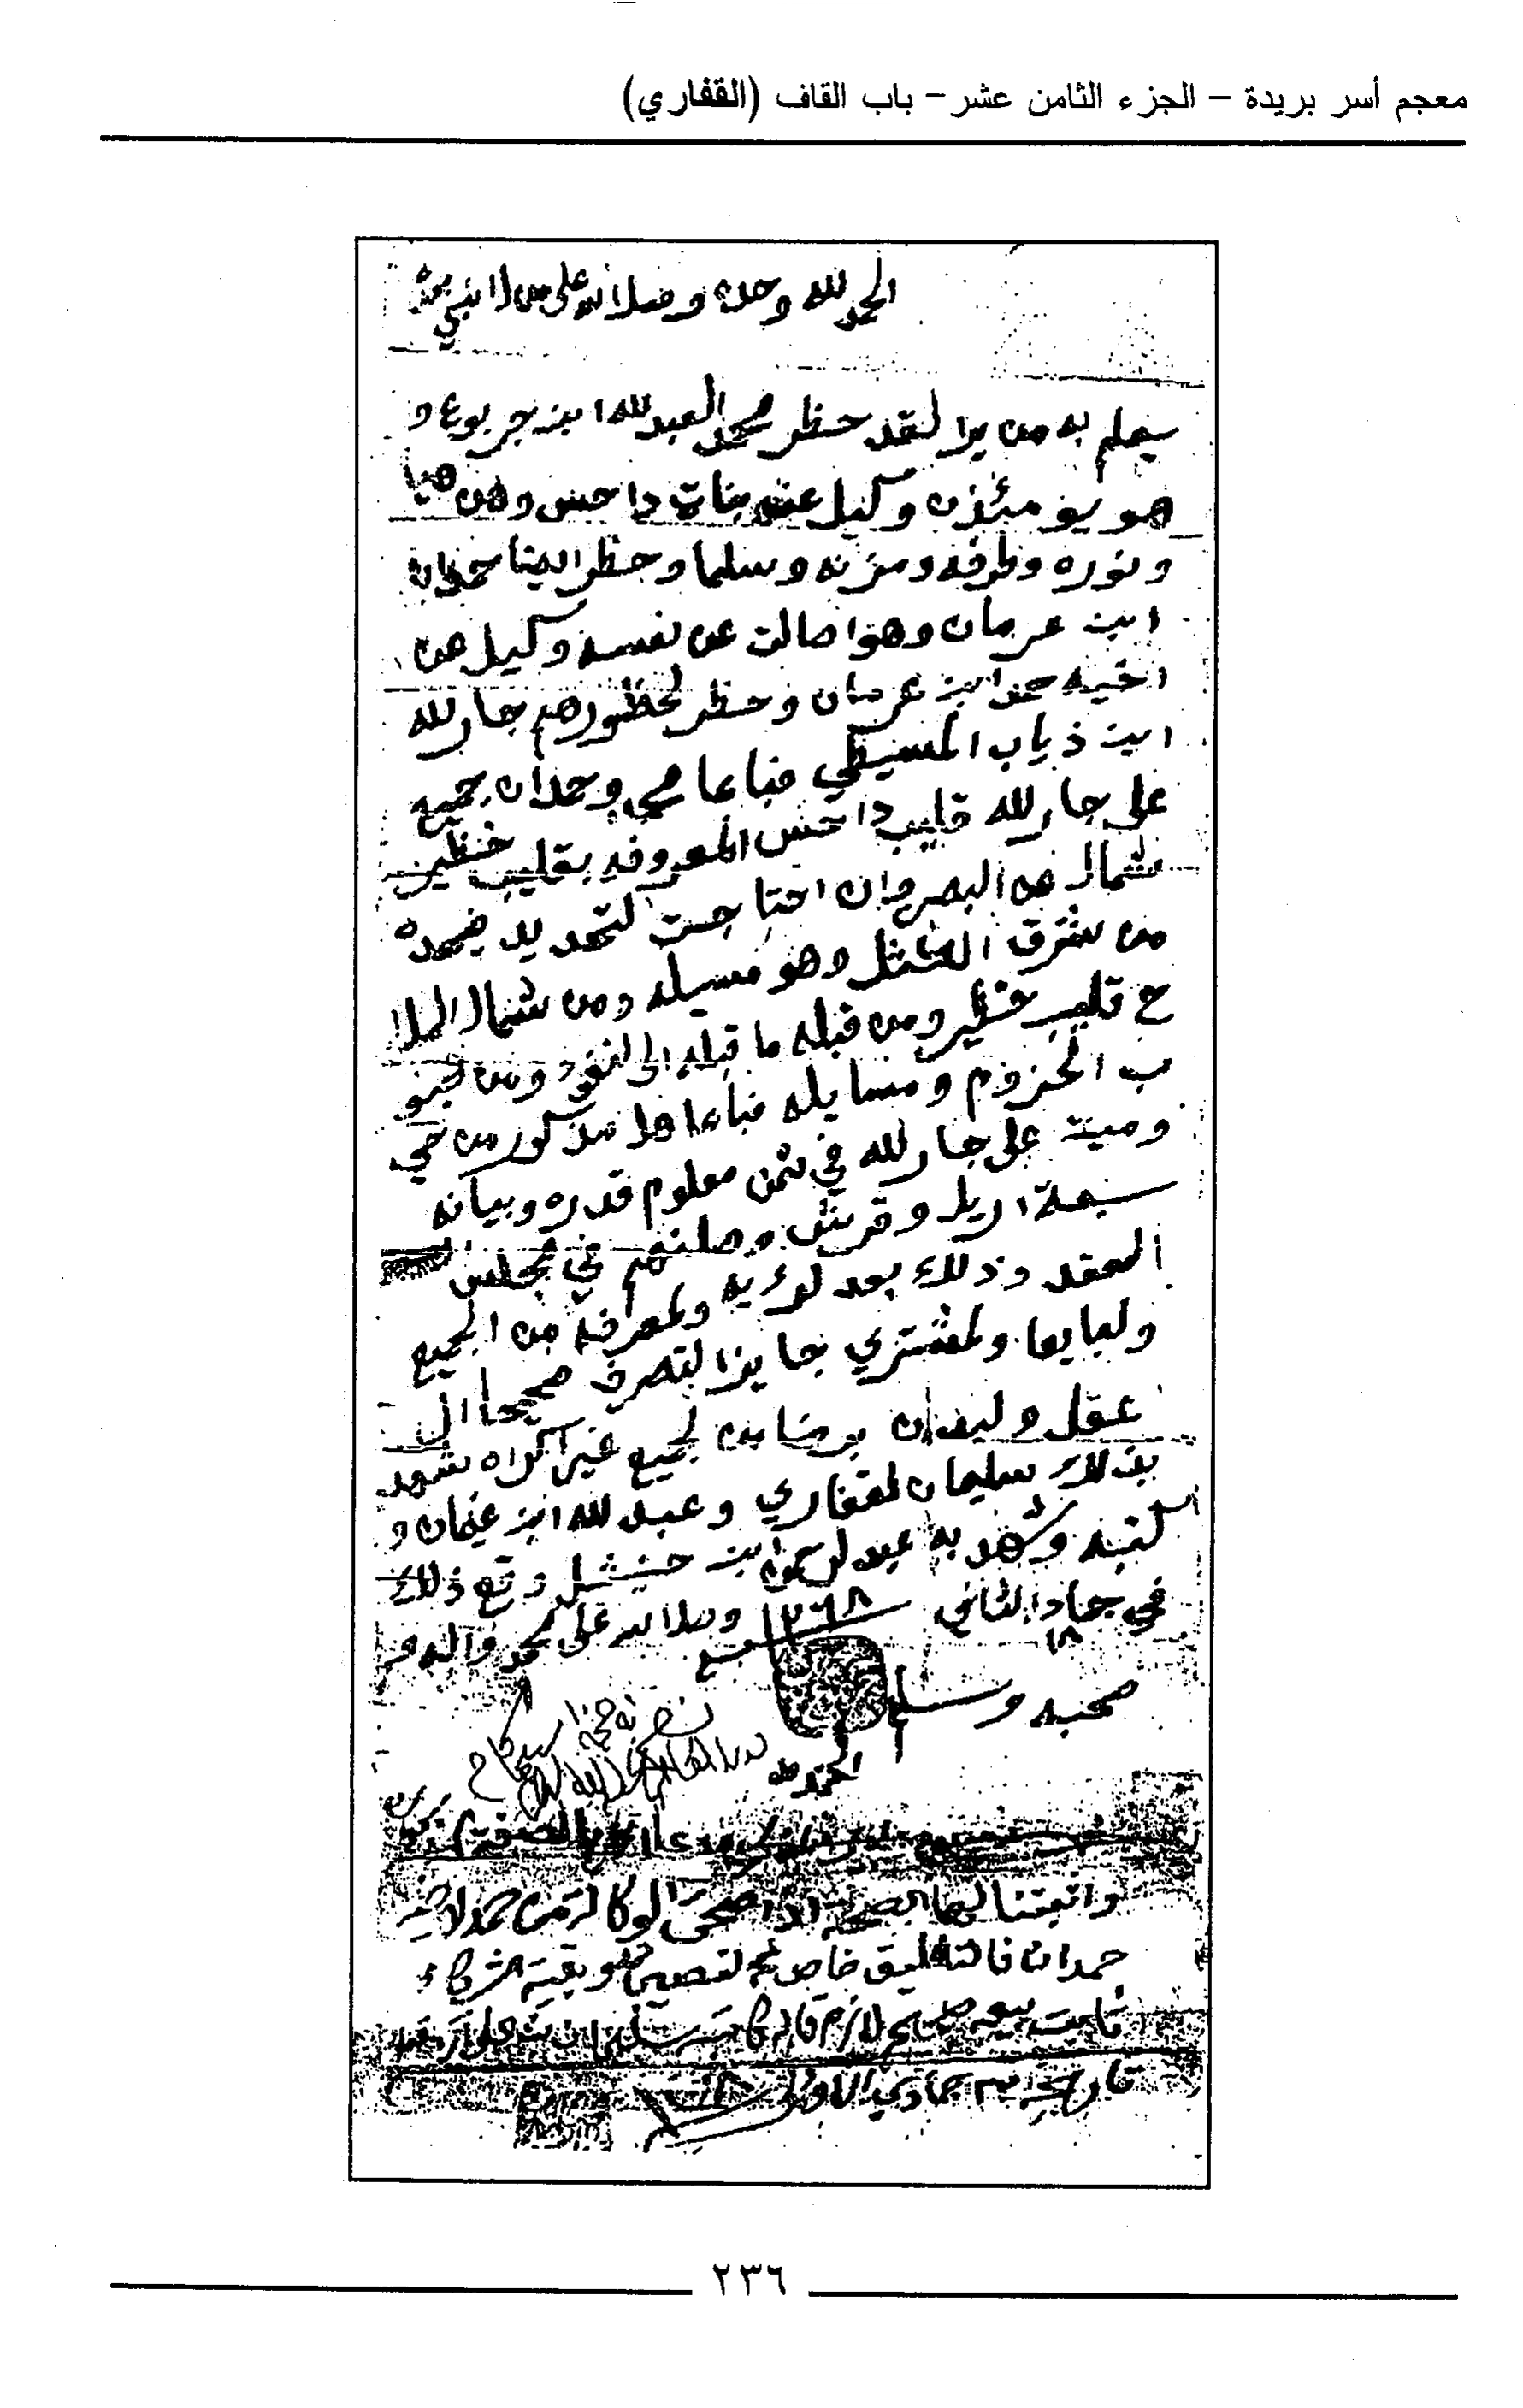 معجم أسر بريدة – الجزء الثامن عشر – باب القاف (القفاري)
الحمد لله وحده وصلا الله على من لا نبي بعده
يعلم به من يراه لقد حظر محمد العبدلله ابن جربوع و
هو يومئذن وكيل عن بنات داحس وهن هيا
ونوره وطرفه ومزنه وسلما وحظر ايضا حمدان
ابن عرمان وهوا صالت عن نفسه وكيل عن
اخيه حمد ابن عرمان وحظر لحظورهم جارلله
ابن ذياب المسيطي فباعا محمد وحمدان جميع
على جارلله قليب داحس المعروفه بقليب خظير
شمال عن البصر وان احتاجت لتحديد يحده
من شرق وهو مسيله ومن شمال الملا
ح قليب خظير ومن قبله ما قبله الى لنفود ومن جنو
ب الحزوم ومسايله فباعا هل مذكور من حي
وميت على جارلله في ثمن معلوم قدره وبيانه
سبعة اريل وقرش وصلنهم في مجلس
العقد وذلك بعد لرئيه ولمعرفه من الجميع
ولبايعا ولمشتري جايز التصرف صحيحا ال
عقل ولبدان برضا من لجميع غير اكراه شهد
بذلك سليمان لقفاري وعبدلله ابن عثمان و
كتبه وشهد به عبد لرحمن ابن حنيشل وقع ذلك
في جماد الثاني ١٨ ١٢٦٨ وصلا الله على محمد واله و
صحبه وسلم
الحمد لله
واثبتنا البيع اذا صحة الوكالة من حمد لاخيه
حمدان فا خاص بقية الشركاء
ثابت بيعه صحيح لازم قاله كاتبه سليمان بن علي
تاريخه جمادي الاولى
٢٣٦